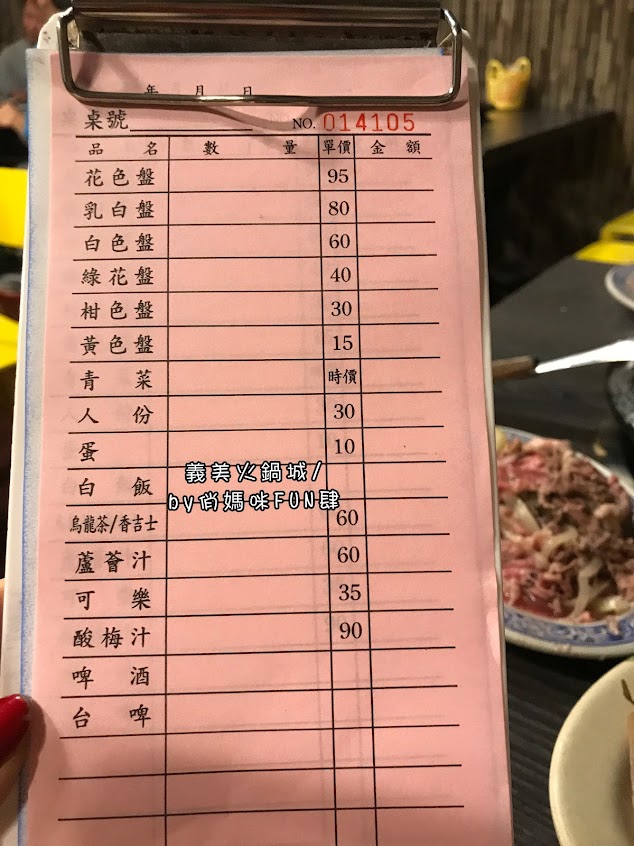 年 月 日
桌號 NO. 014105
品名 數量 單價 金額
花色盤 95
乳白盤 80
白色盤 60
綠花盤 40
柑色盤 30
黃色盤 15
青菜 時價
人份 30
蛋 10
白飯
烏龍茶/香吉士 60
蘆薈汁 60
可樂 35
酸梅汁 90
啤酒
台啤
義美火鍋城/
by俏媽咪FUN肆